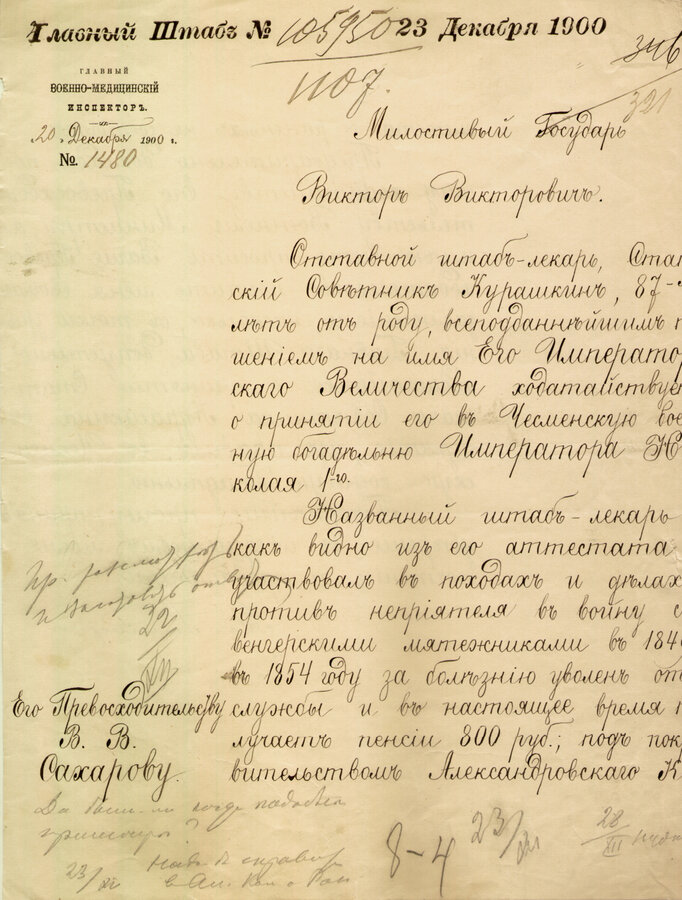 Главный Штабъ № 105950 23 Декабря 1900
1107.
346
321
ГЛАВНЫЙ
ВОЕННО-МЕДИЦИНСКІЙ
ИНСПЕКТОРЪ.
20 Декабря 1900 г.
№. 1480
Милостивый Государь
Викторъ Викторовичъ.
Отставной штабъ-лекарь, Стат
скій Совѣтникъ Курашкинъ, 87-
лѣтъ отъ роду, всеподданнѣйшимъ п
шеніемъ на имя Его Император
скаго Величества ходатайствуе
о принятіи его въ Чесменскую вое
ную богадѣльню Императора Н
колая 1-го.
Названный штабъ-лекарь
какъ видно изъ его аттестата
участвовалъ въ походахъ и дѣлахъ
противъ непріятеля въ войну с
венгерскими мятежниками въ 184
въ 1854 году за болѣзнію уволенъ от
службы и въ настоящее время п
лучаетъ пенсіи 800 руб.; подъ пок
вительствомъ Александровскаго К
22
XII
Его Превосходительству
В. В.
Сахарову.
23/XII
8-4
23/XII
28
XII